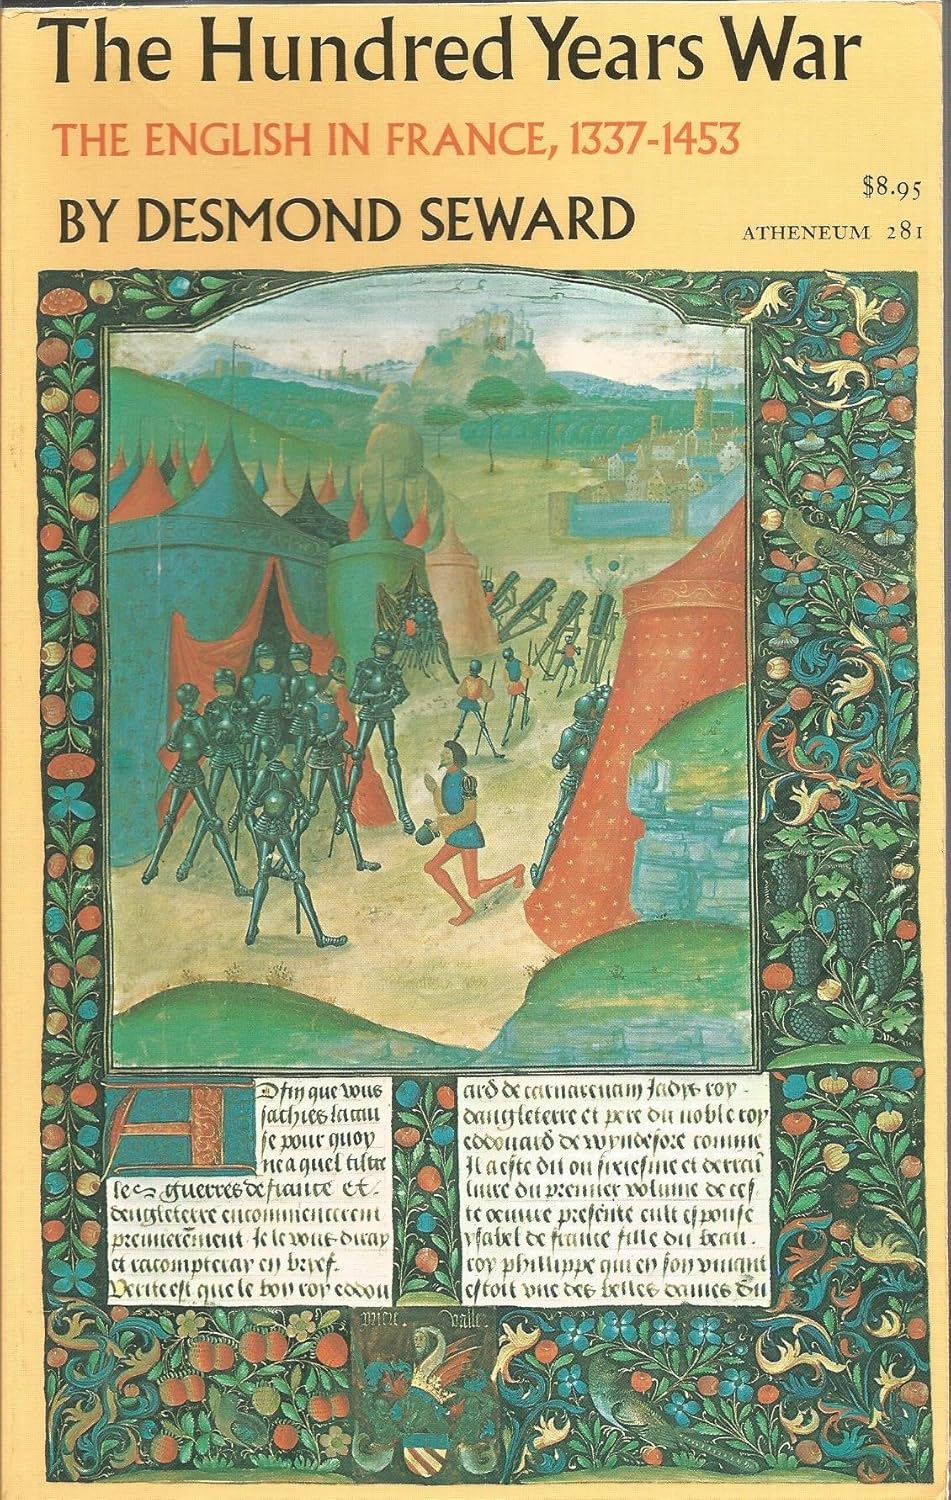 The Hundred Years War
THE ENGLISH IN FRANCE, 1337-1453
BY DESMOND SEWARD
$8.95
ATHENEUM 281
Afin que vous
sachies la cau
se pour quoy
ne a quel tiltre
les guerres de france et.
dengleterre encommencerent
premierement. Je le vous diray
et racompteray en brief.
Verite est que le bon roy edou
ard de carnarenam jadys roy.
dangleterre et pere du noble roy
eddouard de wyndesore comme
Il a este dit ou sixiesme et derreū
liure du premier volume de ces.
te œuure presēte eult espouse
ysabel de france fille du beau.
roy phillippe qui en son viuant
estoit vne des belles dames du